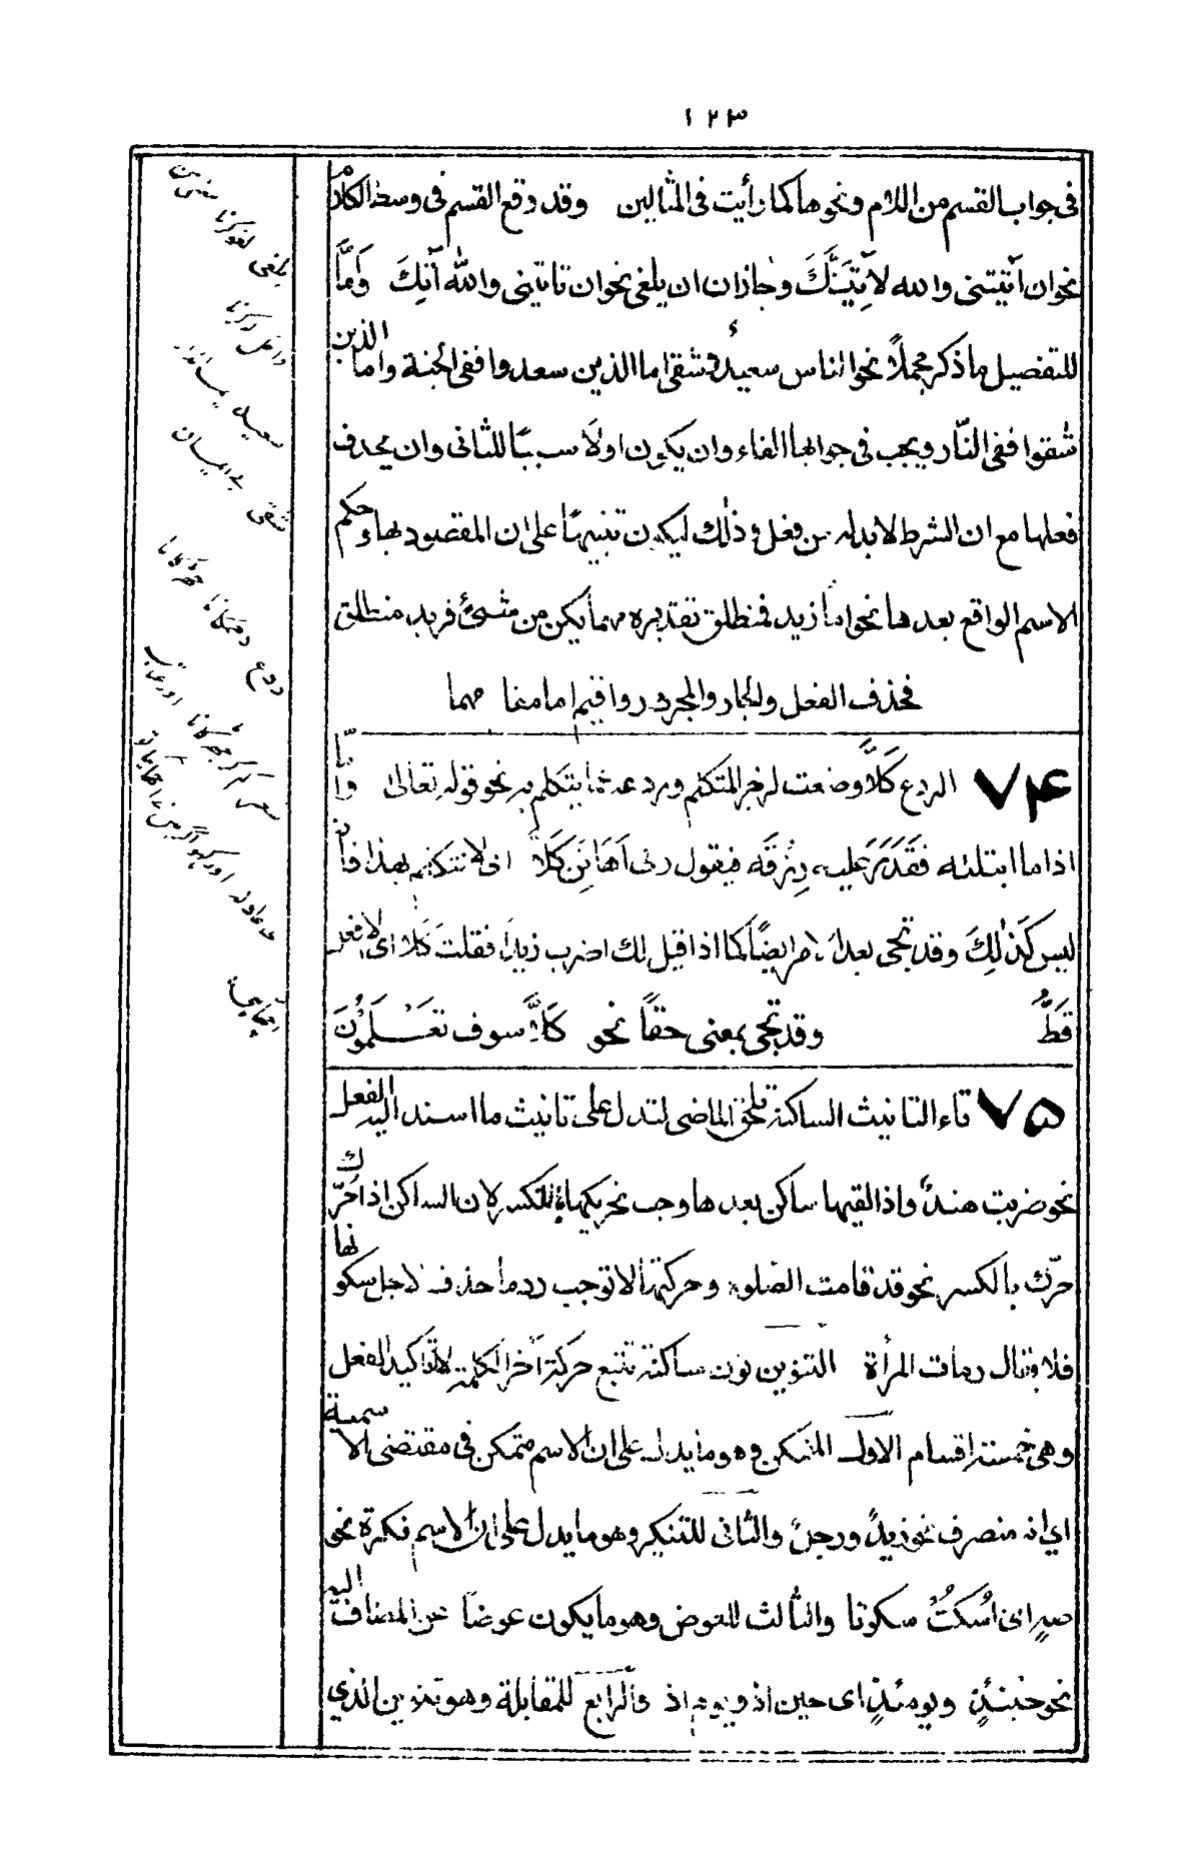 ١٢٣
فى جواب القسم من اللام ونحوها كما رأيت فى المثالين وقد وقع القسم فى وسط الكلام
نحو ان اتيتنى والله لآتِيَنَّكَ وجاز ان ان يلغى نحو ان تاتينى والله آتِكَ وَاَمَّا
للتفصيل ما ذكر مجملاً نحو الناس سعيدٌ وشقى اما الذين سعدوا ففى الجنة واما الذين
شقوا ففى النّار ويجب فى جوابها الفاء وان يكون اولاً سببًا للثانى وان يحذف
فعلها مع ان الشرط لابد له من فعل وذٰلك ليكون تنبيهًا على ان المقصود بها وحكم
الاسم الواقع بعدها نحو اما زيد فمنطلق تقديره مهما يكن من شئ فزيد منطلق
فحذف الفعل والجار والمجرور واقيم اما مقا مهما
٧۴ الردع كَلاَّ وضعت لزجر المتكلم وردعه عما يتكلم به نحو قوله تعالىٰ وَاَمَّا
اذا ما ابتلئه فَقَدَرَ عليه رِزْقَه فيقول ربى اَهَانَنِ كَلاَّ اى لا تتكلم بهذا فانه
ليس كَذٰلِكَ وقد تجى بعد الامر ايضًا كما اذا قيل لك اضرب زيدًا فقلتَ كَلاَّ اى لا افعل
قَطُّ وقد تجى بمعنى حقاً نحو كَلاَّ سوف تَعْلَمُوْنَ
٧۵ تاء التانيث الساكنة تلحق الماضى لتدل على تانيث ما اسند اليه الفعل
نحو ضربت هندٌ واذا لقيها ساكن بعدها وجب تحريكها بالكسر لان الساكن اذا حُرِّك
حرّك بالكسر نحو قد قامت الصلوة وحركتها لا توجب رد ما حذف لاجل سكونها
فلا يقال رمات المرأة التنوين نون ساكنة تتبع حركة آخر الكلمة لا لتاكيد الفعل
وهى خمسة اقسام الاول المتمكن وهو ما يدل على ان الاسم متمكن فى مقتضى الاسمية
اي انه منصرف نحو زيدٌ ورجلٌ والثانى للتنكير وهو ما يدل على ان الاسم نكرة نحو
صهٍ اى اُسْكُتْ سكوتا والثالث للعوض وهو ما يكون عوضًا عن المضاف اليه
نحو حينئذٍ ويومئذٍ اى حين اذ ويوم اذ والرابع للمقابلة وهو تنوين الذي
يلغى لغو كرنا
سعيد
شقى بے ايمان
ردع دهمكانا جهڑكنا